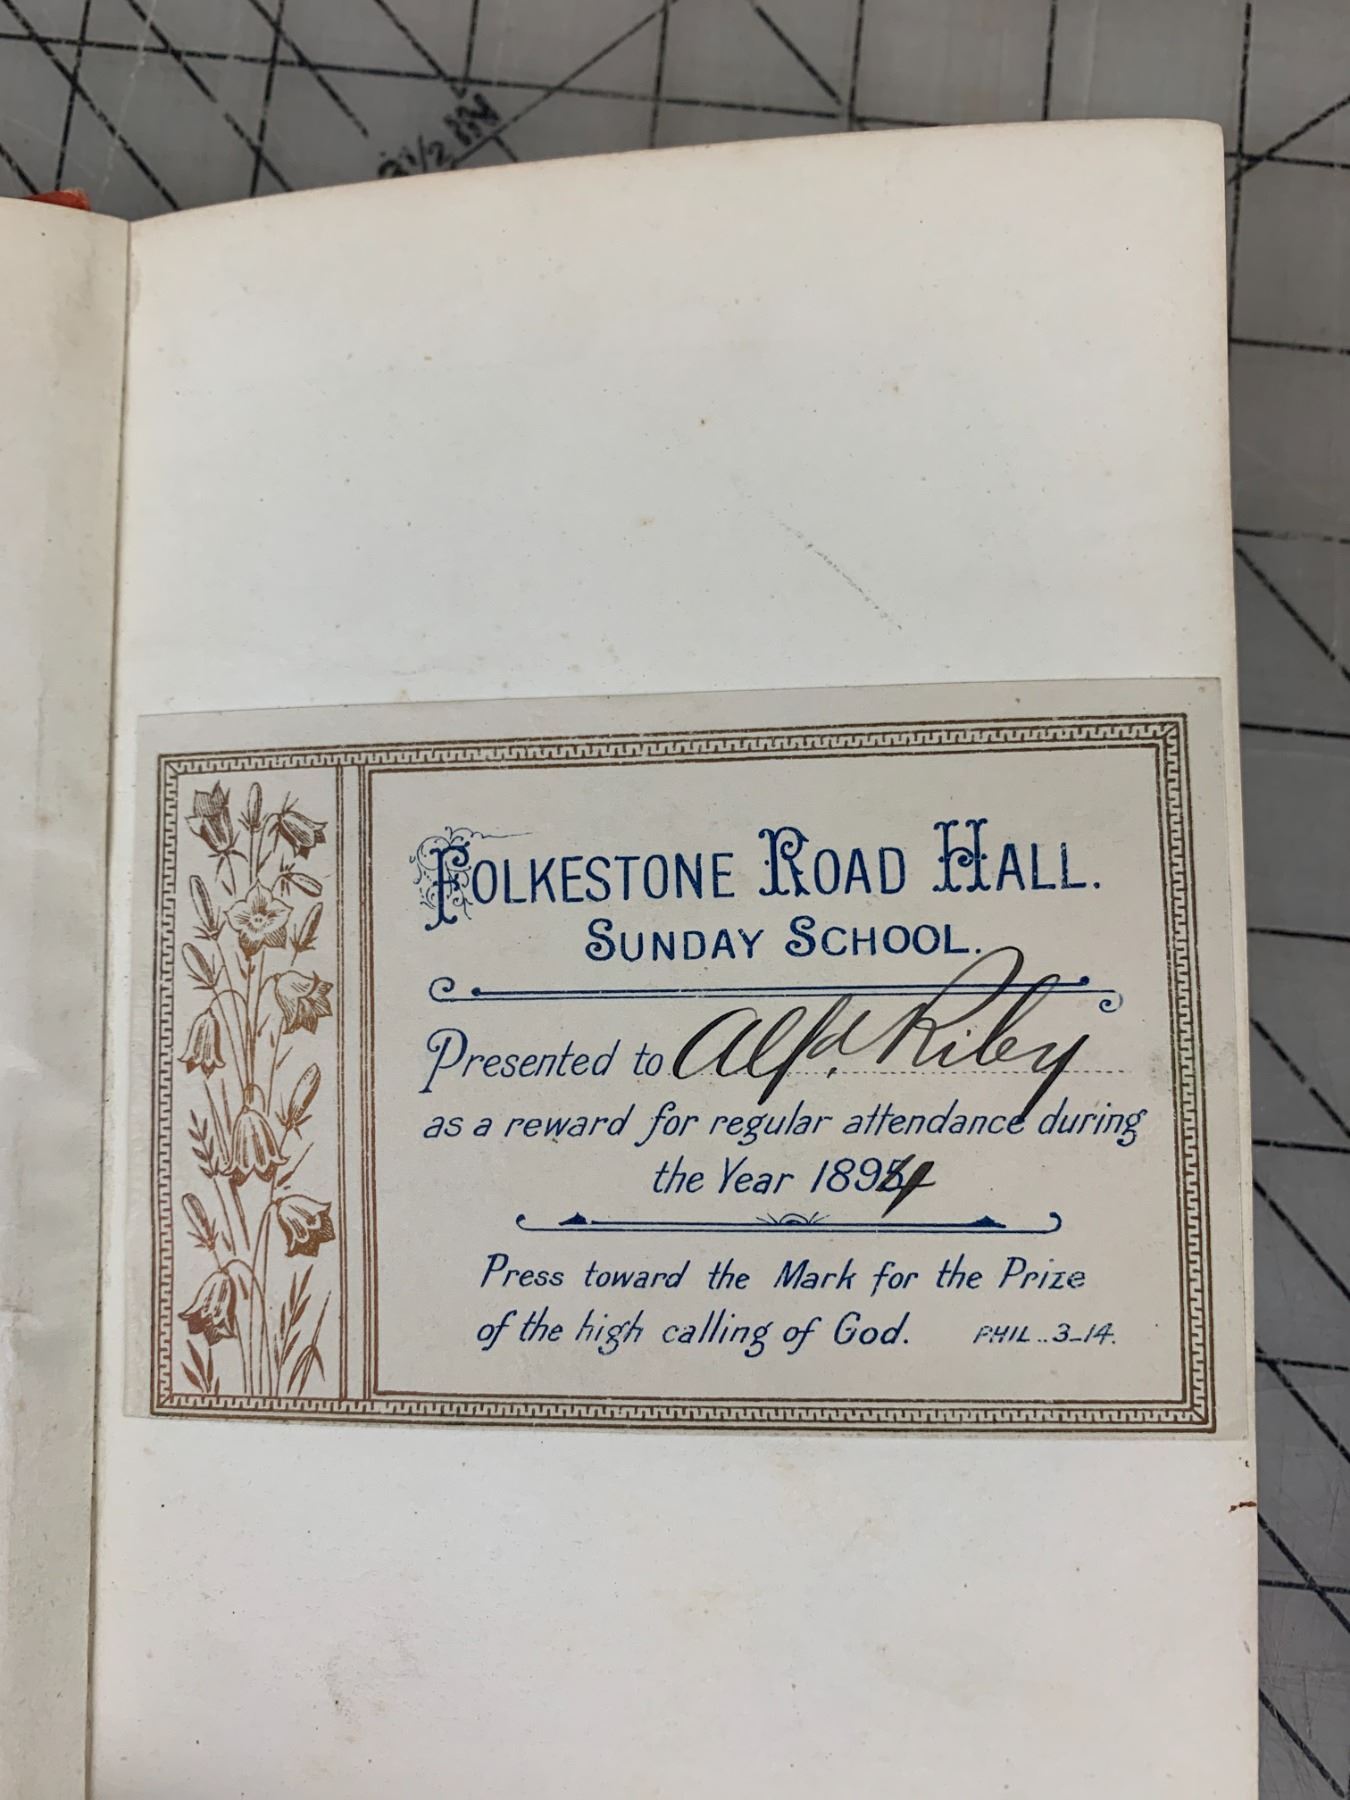 FOLKESTONE ROAD HALL.
SUNDAY SCHOOL.
Presented to Alfd. Riby
as a reward for regular attendance during
the Year 1894
Press toward the Mark for the Prize
of the high calling of God. PHIL..3-14.